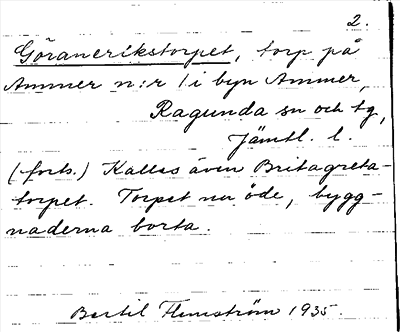 2.
Göranerikstorpet, torp på
Ammer n:r 1 i byn Ammer,
Ragunda sn och tg,
Jämtl. l.
(forts.) Kallas även Britagreta-
torpet. Torpet nu öde, bygg-
naderna borta.
Bertil Flemström 1935.